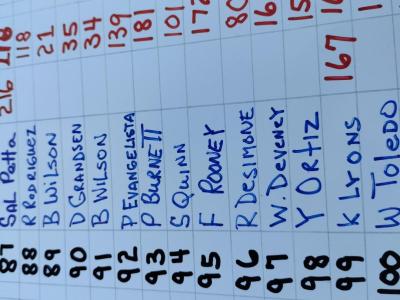 87 SAL Patta 216
88 R RODRIGUEZ 118
89 B WILSON 21
90 D GRANDSEN 35
91 B WILSON 34
92 P EVANGELISTA 139
93 P BURNETT 181
94 S QUINN 101
95 F ROONEY
96 R DESIMONE
97 W. DEVENEY
98 Y ORTIZ
99 K LYONS 167
100 W TOLEDO